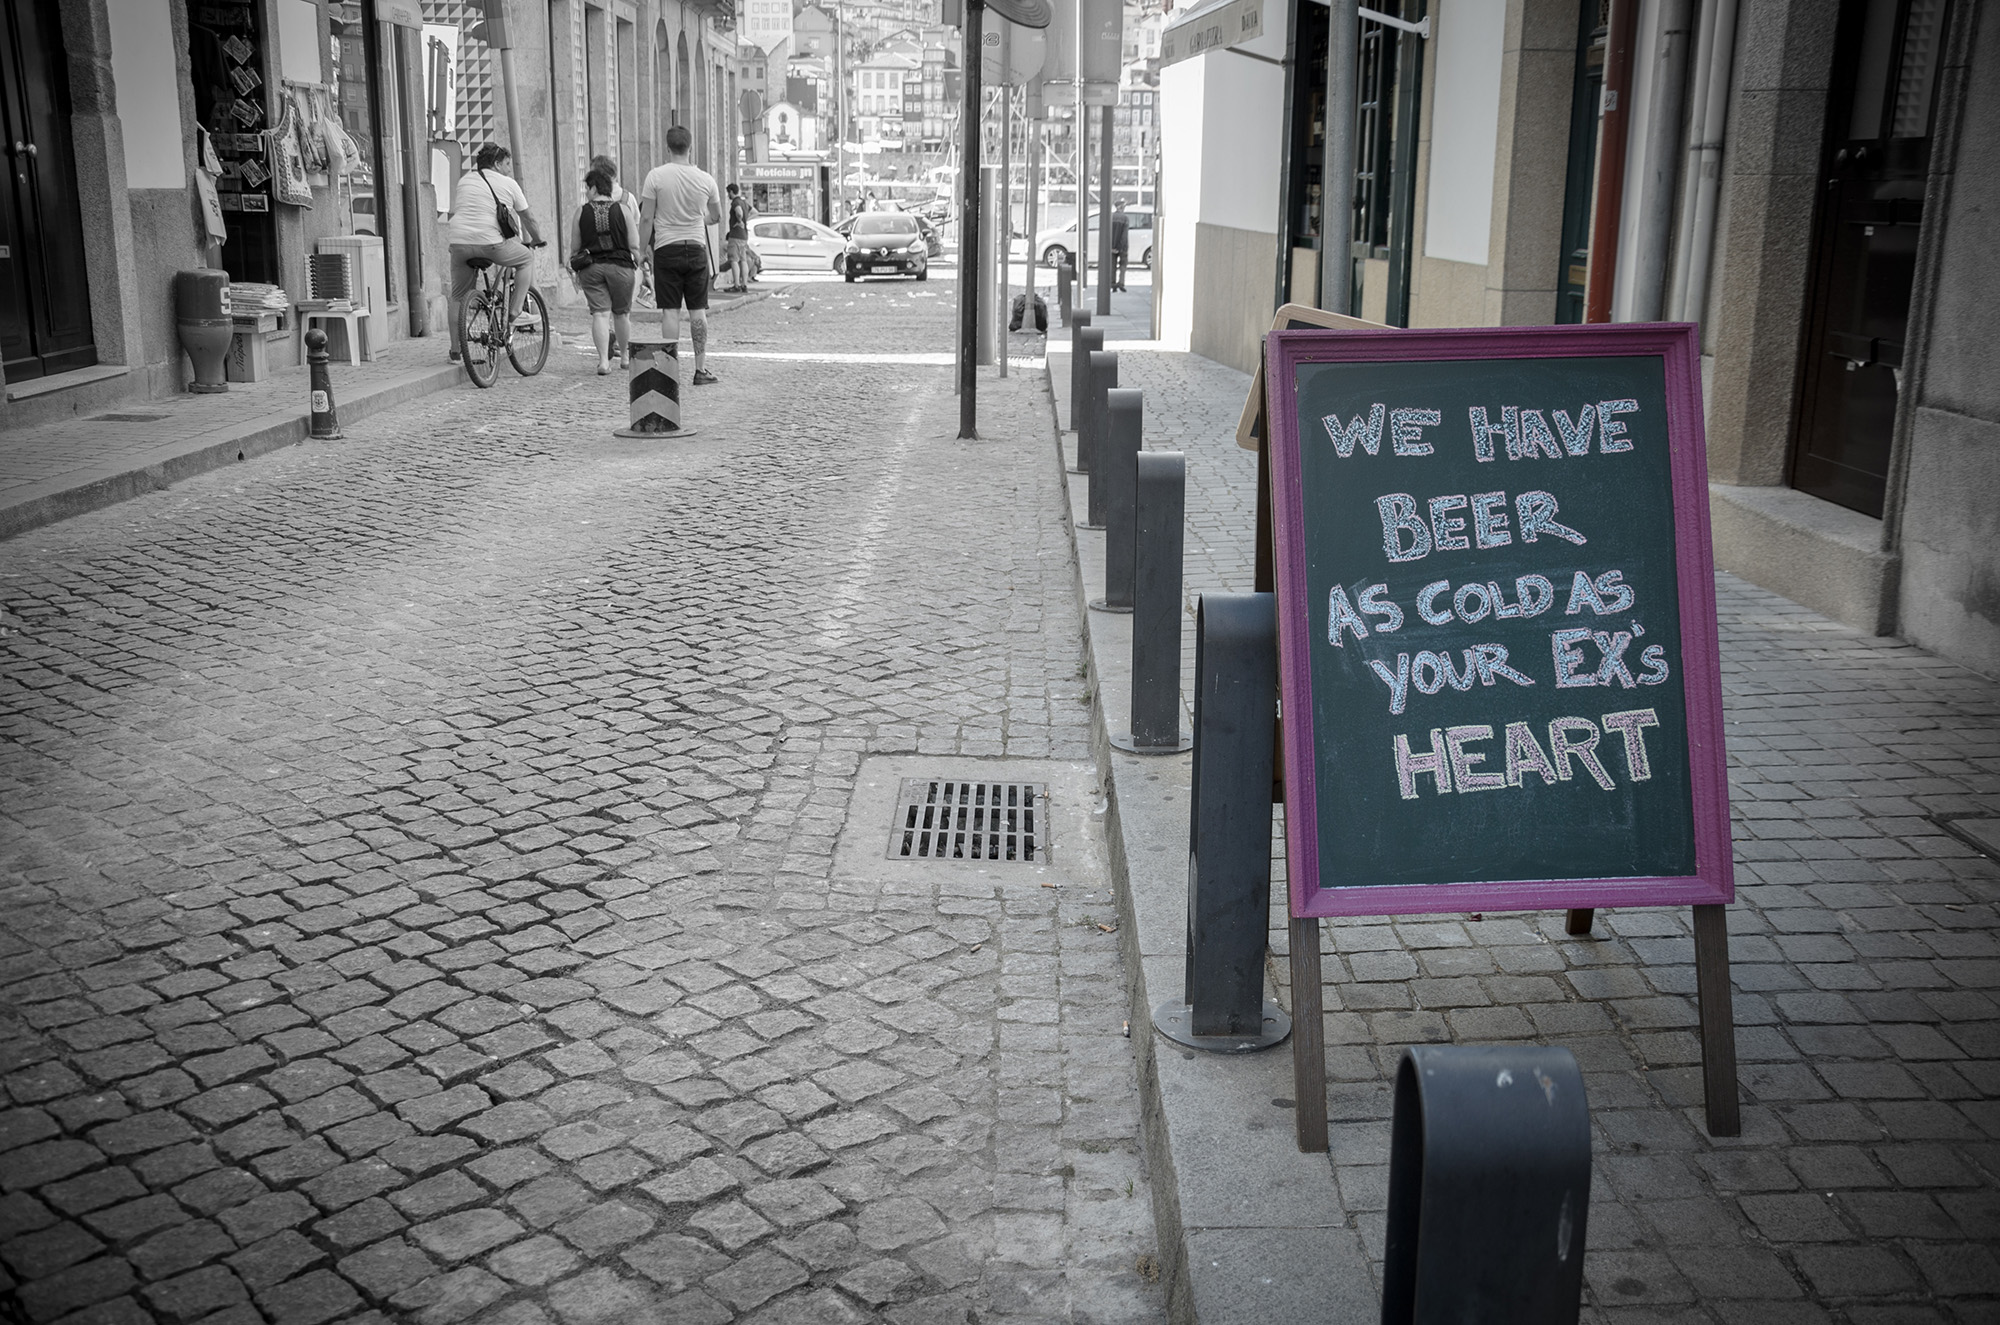 Notícias jn
WE HAVE
BEER
AS COLD AS
YOUR EX's
HEART